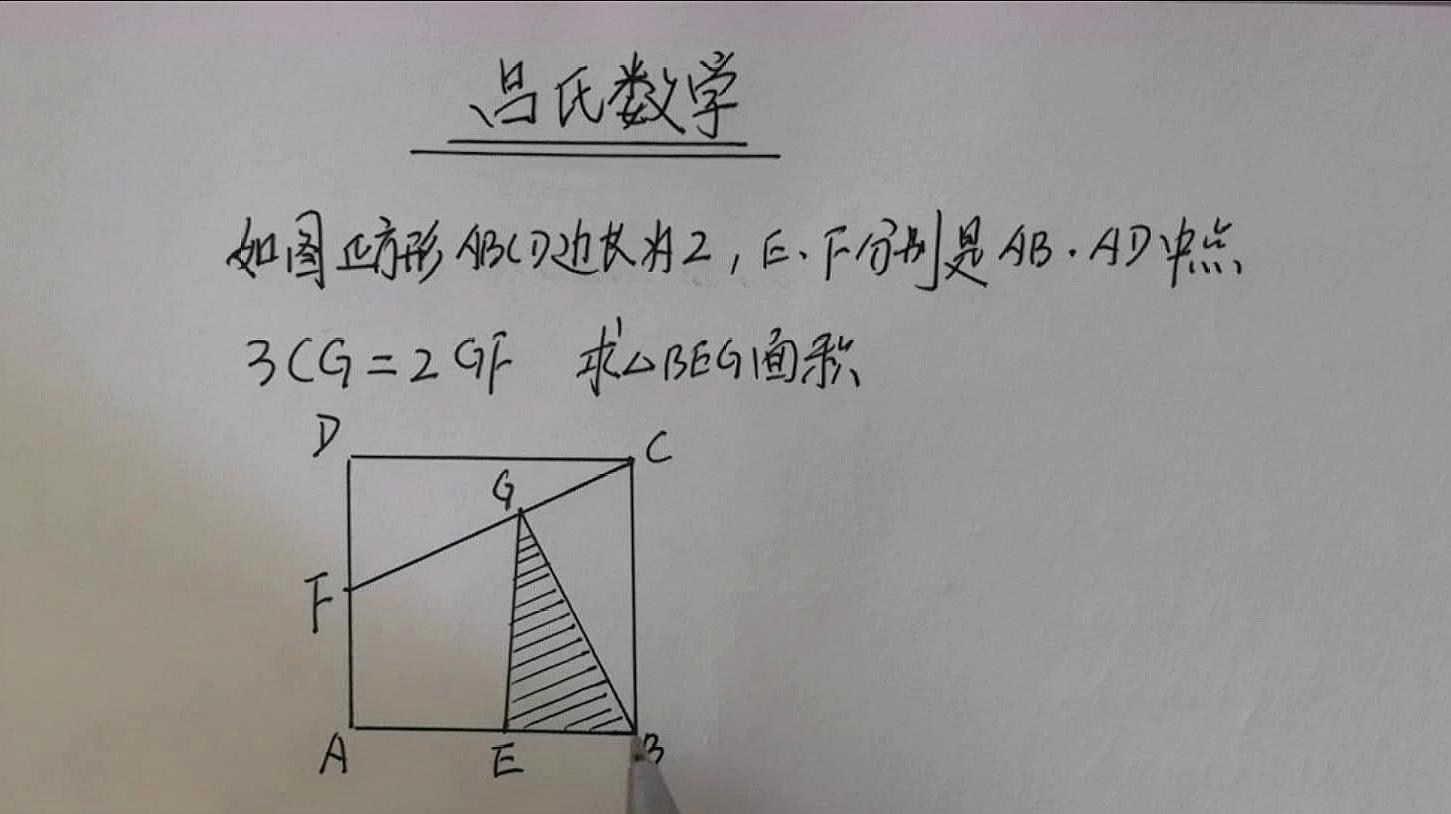 吕氏数学
如图正方形ABCD边长为2,E、F分别是AB.AD中点
3CG=2GF 求△BEG面积
D
C
G
F
A
E
B